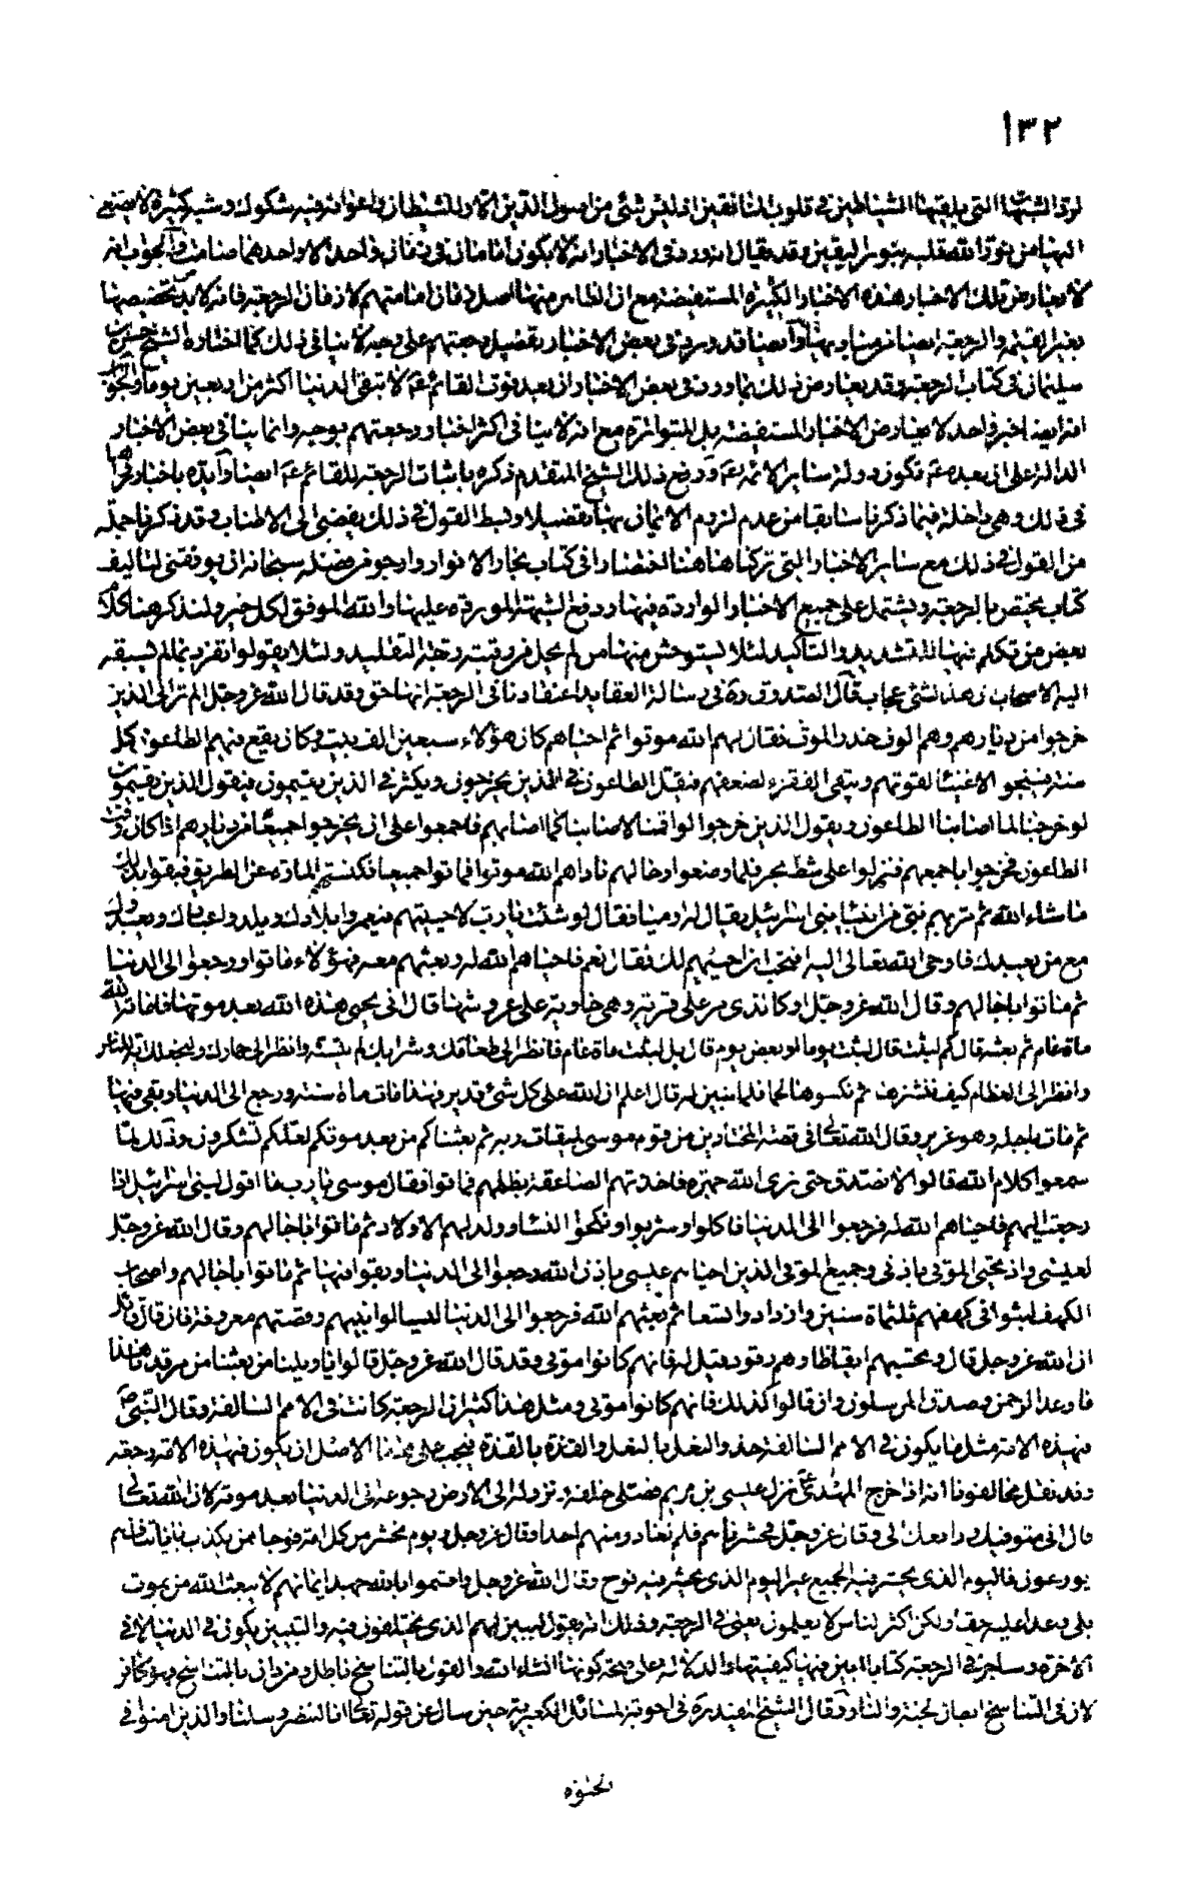 ١٣٢
لرد الشبهات التي يلقيها الشياطين في قلوب المنافقين اذ ليس شئ من اصول الدين الا وللشيطان واعوانه فيه شكوك وشبه كثيرة لا يصغى
اليها من نور الله قلبه بنور اليقين وقد يقال انه ورد في الاخبار انه لا يكون امامان في زمان واحد الا واحدهما صامت والجواب انه
لا يعارض تلك الاخبار هذه الاخبار الكثيرة المستفيضة مع ان الظاهر منها اصل زمان امامتهم لا زمان الرجعة فانه لا بد من تخصيصها
بغير القيمة والرجعة ايضا وايضا قد ورد في بعض الاخبار تفضيل رجعتهم على وجه لا ينافي ذلك كما اختاره الشيخ حسن بن
سليمان في كتاب الرجعة وقد يعارض ذلك بما ورد في بعض الاخبار ان بعد فوت القائم ع لا تبقى الدنيا اكثر من اربعين يوما والجواب
انه ايضا خبر واحد لا يعارض الاخبار المستفيضة بل المتواترة مع انه لا ينافي اكثر اخبار رجعتهم بوجه وانما ينافي بعض الاخبار
الدالة على ان بعده ع تكون دولة ساير الائمة ع ودفع ذلك الشيخ المتقدم ذكره باثبات الرجعة للقائم ع ايضا وايده باخبار
في ذلك وهي داخلة فيما ذكرنا سابقا من عدم لزوم الايمان بها تفصيلا وبسط القول في ذلك يفضي الى الاطناب وقد ذكرنا جملة
من القول في ذلك مع ساير الاخبار التي تركناها هنا اختصارا في كتاب بحار الانوار وارجو من فضله سبحانه ان يوفقني لتاليف
كتاب يختص بالرجعة ويشتمل على جميع الاخبار الواردة فيها ودفع الشبه الموردة عليها والله الموفق لكل خير ولنذكر هنا كلام
بعض من تكلم فيها للتشديد والتاكيد لئلا يستوحش منها من لم يحل من رقبته ربقة التقليد ولئلا يقولوا تفرد بما لم يسبقه
اليه الاصحاب وهذا لشئ عجاب قال الصدوق ره في رسالة العقايد اعتقادنا في الرجعة انها حق وقد قال الله عز وجل الم تر الى الذين
خرجوا من ديارهم وهم الوف حذر الموت فقال لهم الله موتوا ثم احياهم كان هؤلاء سبعين الف بيت وكان يقع فيهم الطاعون كل
سنة فينجو الاغنياء لقوتهم ويبقى الفقراء لضعفهم فيقل الطاعون في الذين يخرجون ويكثر في الذين يقيمون فيقول الذين يقيمون
لو خرجنا لما اصابنا الطاعون ويقول الذين خرجوا لو اقمنا لاصابنا كما اصابهم فاجمعوا على ان يخرجوا جميعا من ديارهم اذا كان وقت
الطاعون فخرجوا باجمعهم فنزلوا على شط بحر فلما وضعوا رحالهم ناداهم الله موتوا فماتوا جميعا فكنستهم المارة عن الطريق فبقوا بذلك
ما شاء الله ثم مر بهم نبي من انبياء بني اسرائيل يقال له ارميا فقال لو شئت يا رب لاحييتهم فيعمروا بلادك ويلدوا عبادك ويعبدوك
مع من يعبدك فاوحى الله تعالى اليه افتحب ان احييهم لك فقال نعم فاحياهم الله له وبعثهم معه فهؤلاء ماتوا ورجعوا الى الدنيا
ثم ماتوا باجالهم وقال الله عز وجل او كالذي مر على قرية وهي خاوية على عروشها قال انى يحيى هذه الله بعد موتها فاماته الله
ماة عام ثم بعثه قال كم لبثت قال لبثت يوما او بعض يوم قال بل لبثت ماة عام فانظر الى طعامك وشرابك لم يتسنه وانظر الى حمارك ولنجعلك اية للناس
وانظر الى العظام كيف ننشزها ثم نكسوها لحما فلما تبين له قال اعلم ان الله على كل شئ قدير فهذا مات ماة سنة ورجع الى الدنيا وبقي فيها
ثم مات باجله وهو عزير وقال الله تعالى في قصة المختارين من قوم موسى لميقات ربه ثم بعثناكم من بعد موتكم لعلكم تشكرون وذلك لما
سمعوا كلام الله قالوا لا نصدق حتى نرى الله جهرة فاخذتهم الصاعقة بظلمهم فماتوا فقال موسى يا رب ما اقول لبني اسرائيل اذا
رجعت اليهم فاحياهم الله له فرجعوا الى الدنيا فاكلوا وشربوا ونكحوا النساء وولد لهم الاولاد ثم ماتوا باجالهم وقال الله عز وجل
لعيسى واذ تحيى الموتى باذني وجميع الموتى الذين احياهم عيسى باذن الله رجعوا الى الدنيا وبقوا فيها ثم ماتوا باجالهم واصحاب
الكهف لبثوا في كهفهم ثلثماة سنين وازدادوا تسعا ثم بعثهم الله فرجعوا الى الدنيا ليسالوا بينهم وقصتهم معروفة فان قال قائل
ان الله عز وجل قال وتحسبهم ايقاظا وهم رقود قيل له فانهم كانوا موتى وقد قال الله عز وجل قالوا يا ويلنا من بعثنا من مرقدنا هذا
ما وعد الرحمن وصدق المرسلون وان قالوا كذلك فانهم كانوا موتى ومثل هذا كثير ان الرجعة كانت في الامم السالفة وقال النبي ص
فهذه الامة مثل ما يكون في الامم السالفة حذو النعل بالنعل والقذة بالقذة فيجب على هذا الاصل ان يكون في هذه الامة رجعة
وقد نقل مخالفونا انه اذا خرج المهدي ع نزل عيسى بن مريم فصلى خلفه ونزوله الى الارض رجوعه الى الدنيا بعد موته لان الله تعالى
قال اني متوفيك ورافعك الي وقال عز وجل وحشرناهم فلم نغادر منهم احدا وقال عز وجل ويوم نحشر من كل امة فوجا ممن يكذب باياتنا فهم
يوزعون فاليوم الذي يحشر فيه الجميع غير اليوم الذي يحشر فيه فوج وقال الله عز وجل واقسموا بالله جهد ايمانهم لا يبعث الله من يموت
بلى وعدا عليه حقا ولكن اكثر الناس لا يعلمون يعني في الرجعة وذلك انه يقول ليبين لهم الذي يختلفون فيه والتبيين يكون في الدنيا لا في
الآخرة وساجرد في الرجعة كتابا ابين فيها كيفيتها والدلالة على صحة كونها انشاء الله والقول بالتناسخ باطل ومن دان بالتناسخ فهو كافر
لان في التناسخ ابطال الجنة والنار وقال الشيخ المفيد ره في اجوبة المسائل العكبرية حين سال عن قوله تعالى انا لننصر رسلنا والذين امنوا في
الحيوة